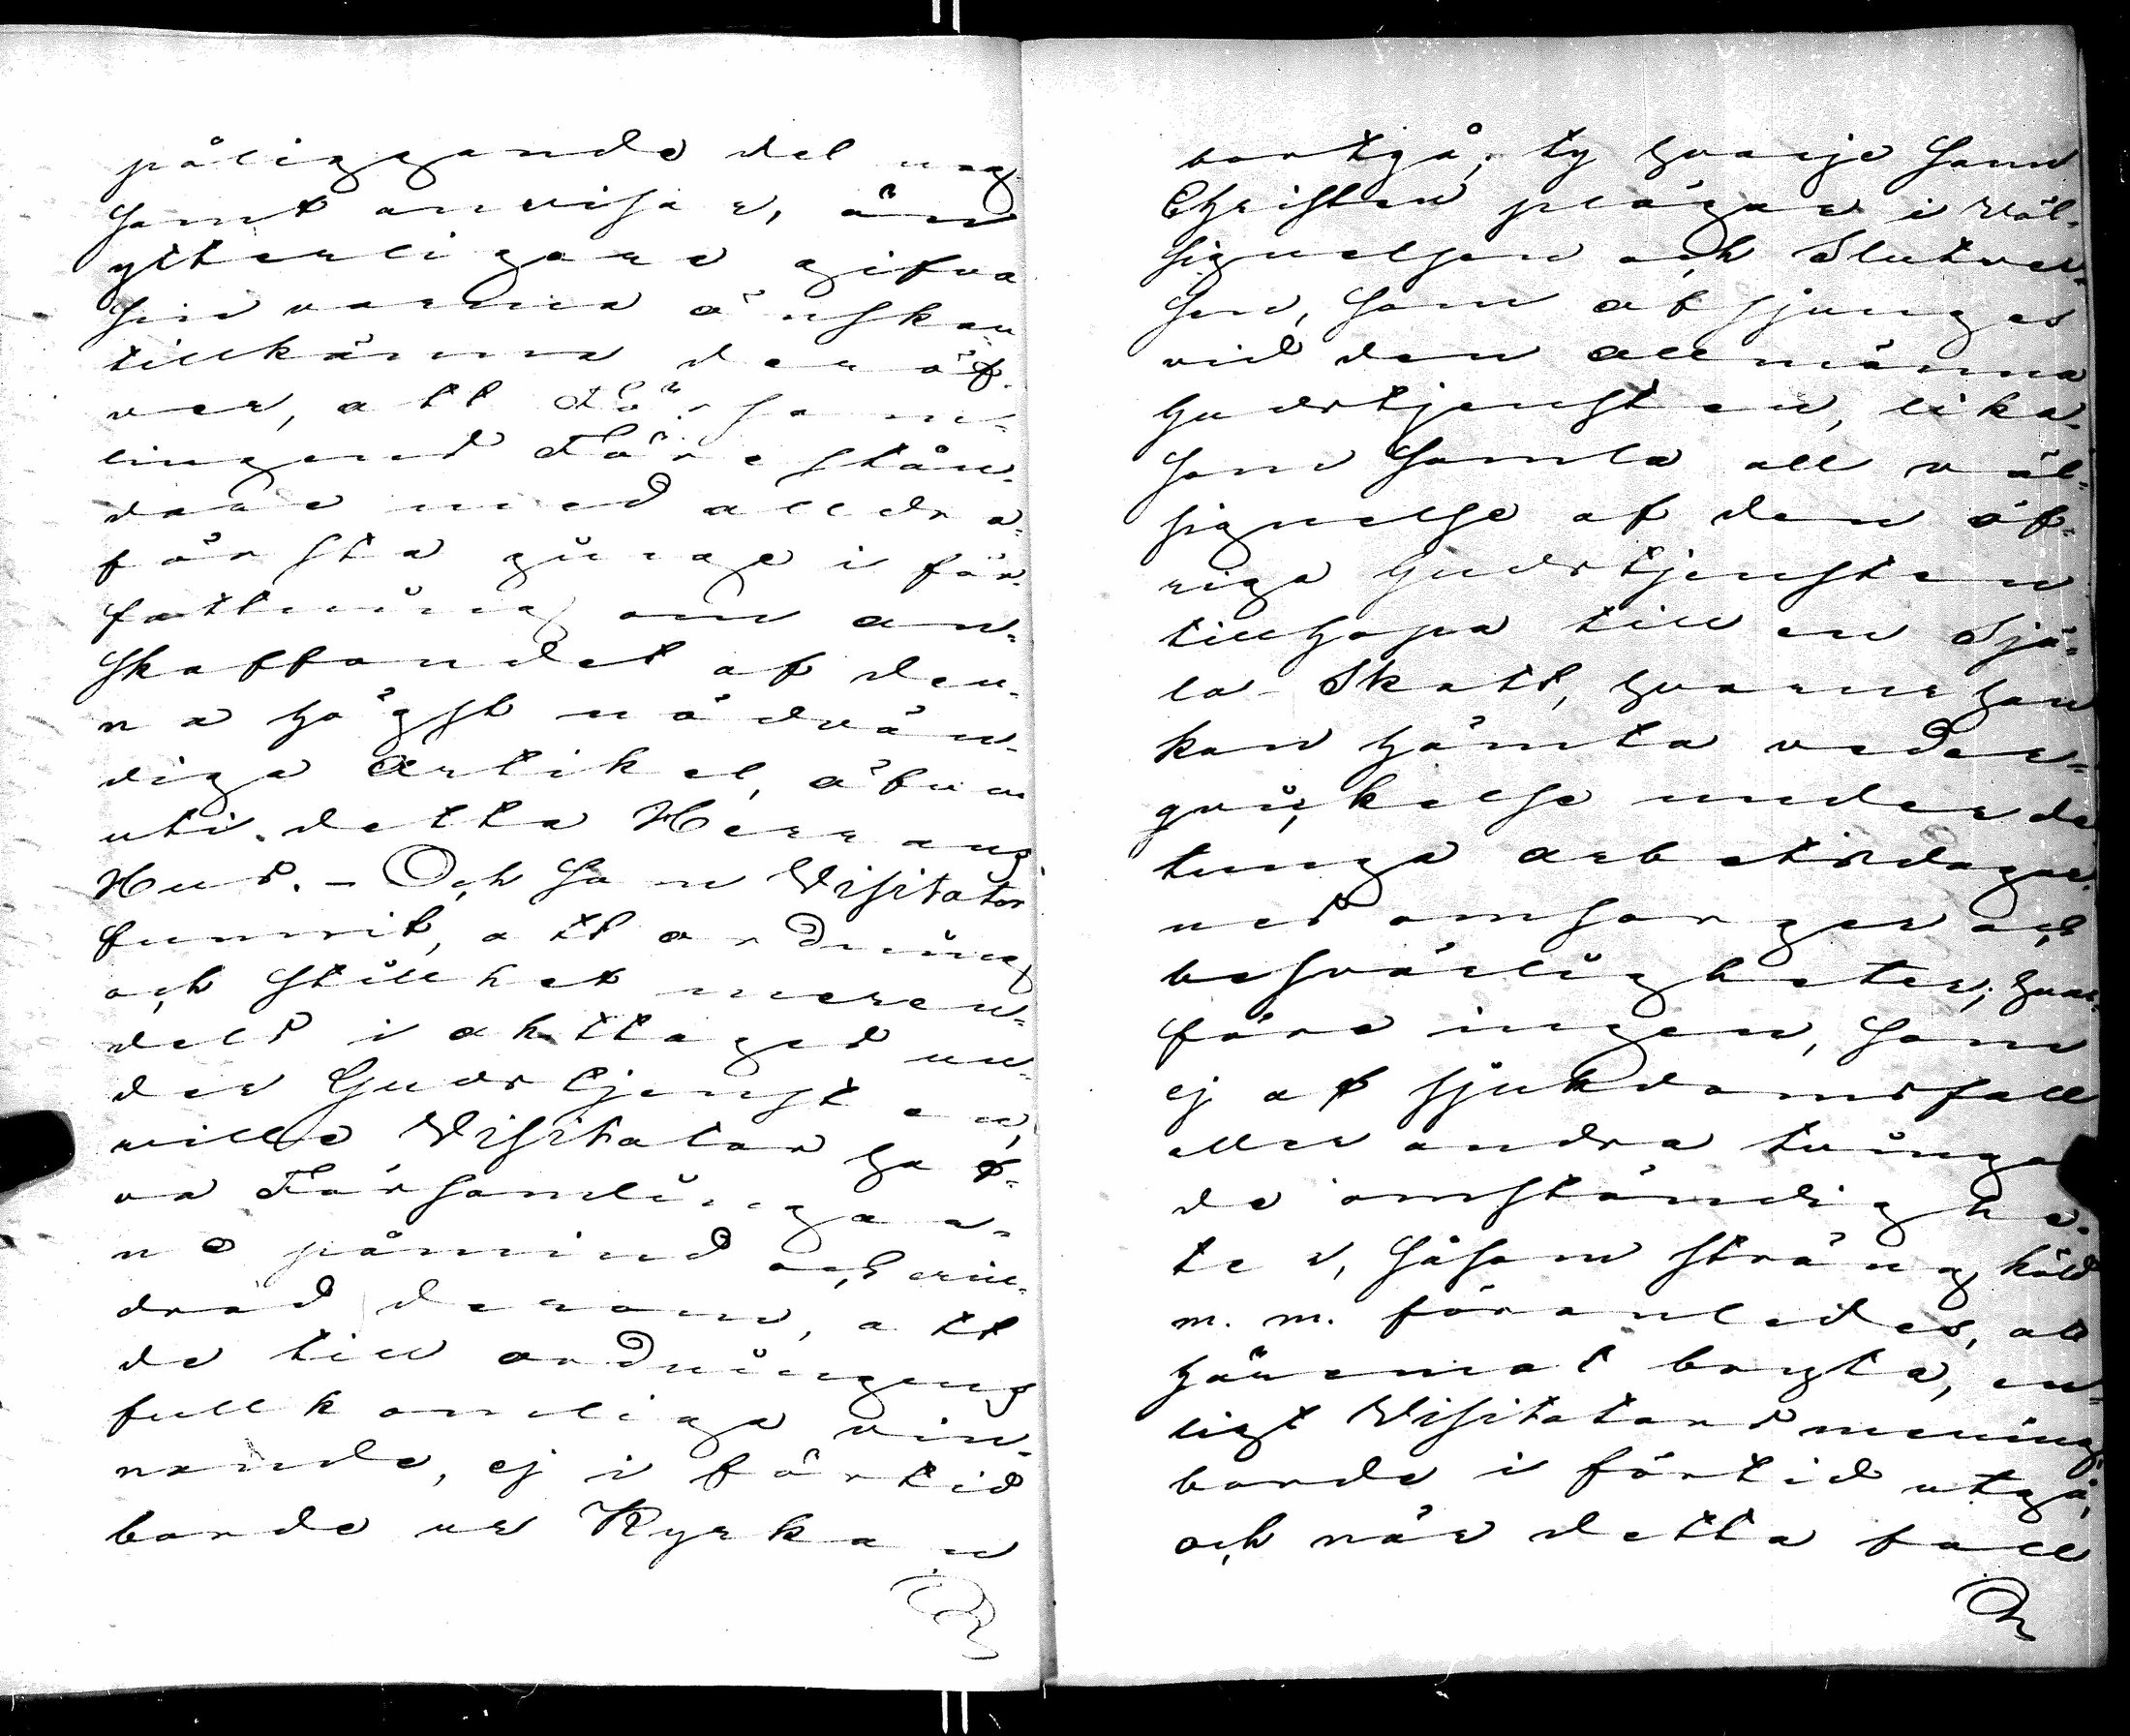 påliggande del nog-
samt anvisar, än
ytterligare gifva
sin varma önskan
tillkänna deröf-
ver, att Församl-
lingens Förestån-
dare med alldra-
första gunge i för-
fattning om an-
skaffandet af den-
na högst nödvän-
diga Artikel, äfven
uti detta Herrans
Hus. - Och som Visitator
funnit, att ordning
och stillhet meren-
dels iakttages un-
der Gudstjensten,
ville Visitator haf-
va Församlingar-
ne påmind och erin-
drad derom, att
de till ordningens
fullkomliga vin-
nande, ej i förtid
borde ur Kyrkan
bortgå; ty hvarje sann
Christen plägar i väl-
signelsen och Slutver-
sen, som afsjunges
vid den allmänna
Gudstjensten, lika-
som samla all väl-
signelse af den öf-
riga Gudstjensten
tillhopa till en Sjä-
la-Skatt, hvarur han
kan hämta veder-
qvickelse under de
tunga arbetsdagar-
nes omsorger och
besvärligheter; hvar-
före ingen, som
ej af sjukdomsfall
eller andra tvingan
de omständighe-
ter, såsom sträng köld
m. m. föranledes, att
häremot bryta, en-
ligt Visitators mening
borde i förtid utgå,
och när detta fall